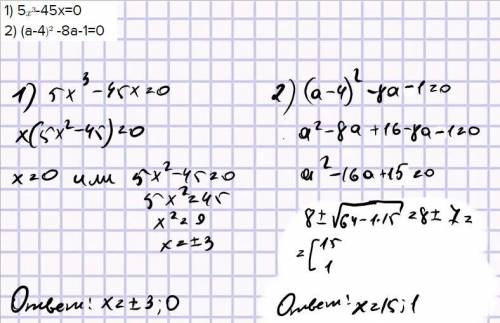 1) 5x³-45x=0
2) (a-4)² -8a-1=0
1) 5x³-45x=0
x(5x²-45)=0
x=0 или 5x²-45=0
5x²=45
x²=9
x=±3
Ответ: x=±3;0
2) (a-4)²-8a-1=0
a²-8a+16-8a-1=0
a²-16a+15=0
8±√64-1·15 =8±7=
=[15
1
Ответ: x=15;1